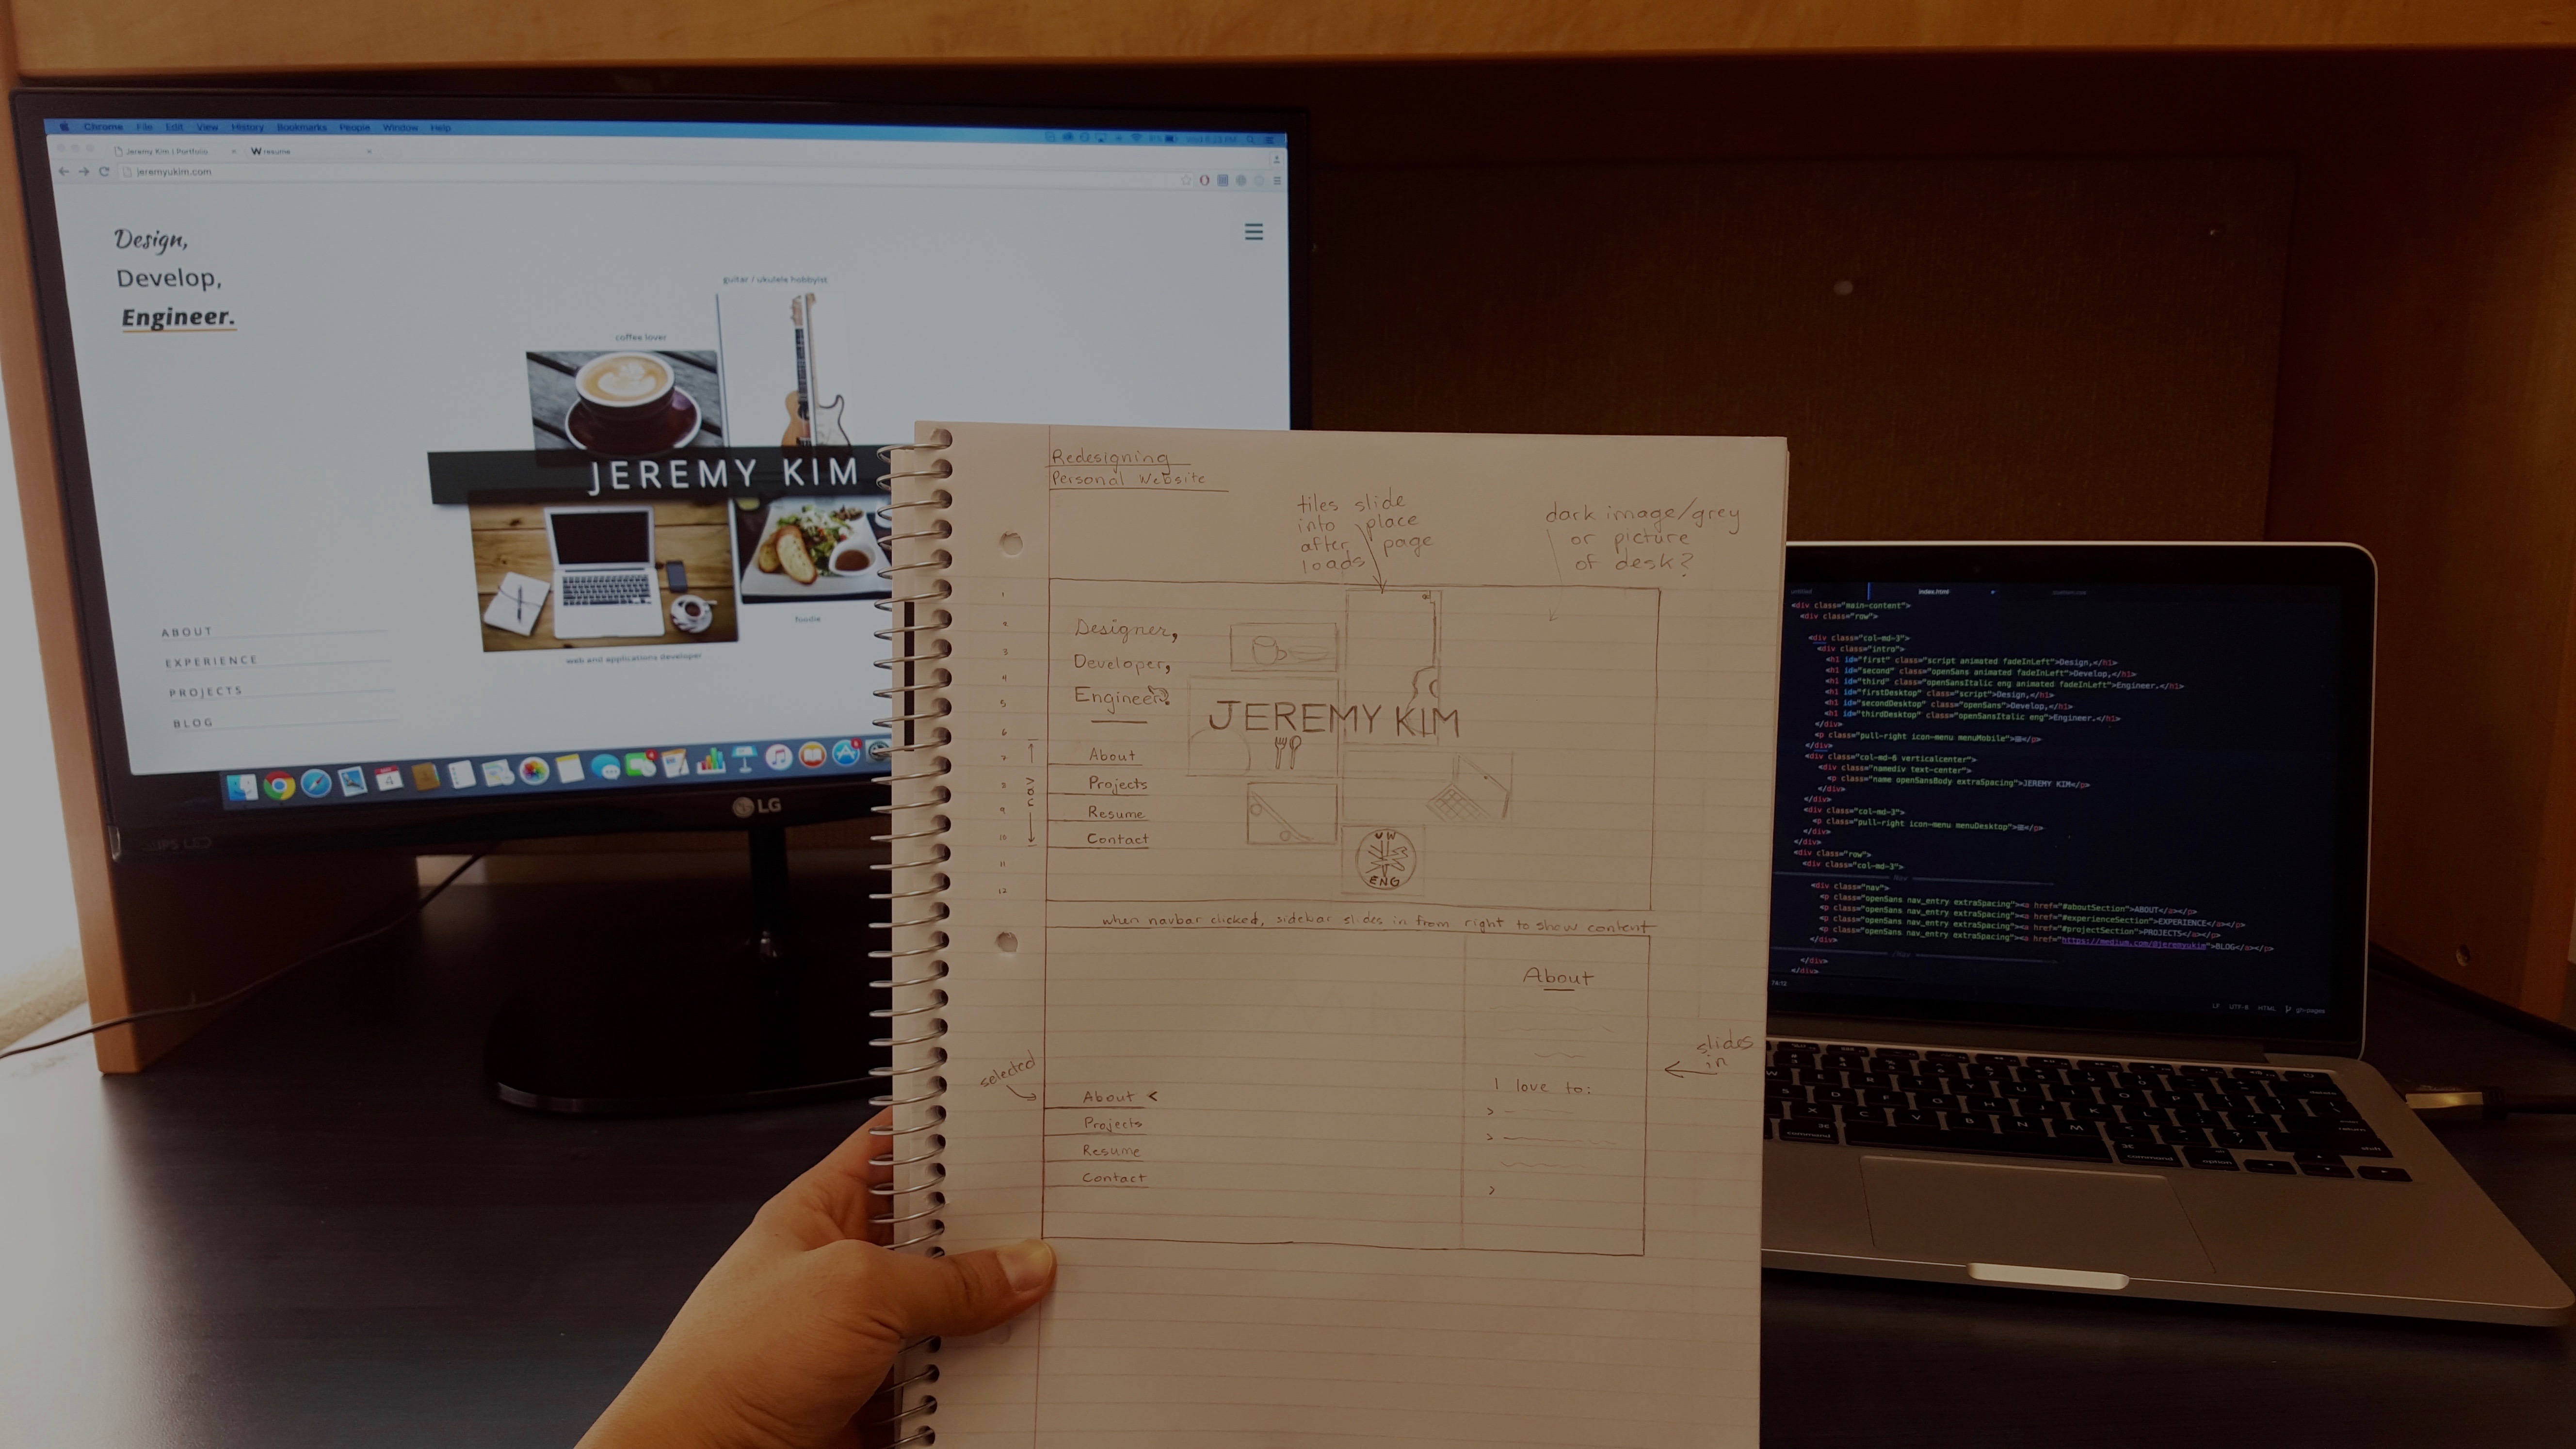 Chrome File Edit View History Bookmarks People Window Help
Jeremy Kim | Portfolio
W resume
jeremyukim.com
Design,
Develop,
Engineer.
guitar / ukulele hobbyist
coffee lover
JEREMY KIM
foodie
web and applications developer
ABOUT
EXPERIENCE
PROJECTS
BLOG
LG
IPS LED
Redesigning
Personal Website
tiles slide
into place
after page
loads
dark image/grey
or picture
of desk?
1
2
3
4
5
6
7
8
9
10
11
12
Designer,
Developer,
Engineer.
JEREMY KIM
About
Projects
Resume
Contact
UW
ENG
when navbar clicked, sidebar slides in from right to show content
About
slides
in
selected
I love to:
About <
Projects
Resume
Contact
>
>
>
untitled index.html
<div class="main-content">
<div class="row">
<div class="col-md-3">
<div class="intro">
<h1 id="first" class="script animated fadeInLeft">Design,</h1>
<h1 id="second" class="openSans animated fadeInLeft">Develop,</h1>
<h1 id="third" class="openSansItalic eng animated fadeInLeft">Engineer.</h1>
<h1 id="firstDesktop" class="script">Design,</h1>
<h1 id="secondDesktop" class="openSans">Develop,</h1>
<h1 id="thirdDesktop" class="openSansItalic eng">Engineer.</h1>
</div>
<p class="pull-right icon-menu menuMobile"></p>
</div>
<div class="col-md-6 verticalcenter">
<div class="namediv text-center">
<p class="name openSansBody extraSpacing">JEREMY KIM</p>
</div>
</div>
<div class="col-md-3">
<p class="pull-right icon-menu menuDesktop"></p>
</div>
<div class="row">
<div class="col-md-3">
Nav
<div class="nav">
<p class="openSans nav_entry extraSpacing"><a href="#aboutSection">ABOUT</a></p>
<p class="openSans nav_entry extraSpacing"><a href="#experienceSection">EXPERIENCE</a></p>
<p class="openSans nav_entry extraSpacing"><a href="#projectSection">PROJECTS</a></p>
<p class="openSans nav_entry extraSpacing"><a href="https://medium.com/@jeremyukim">BLOG</a></p>
</div>
/Nav
</div>
</div>
74:12
LF UTF-8 HTML gh-pages
command
command
option